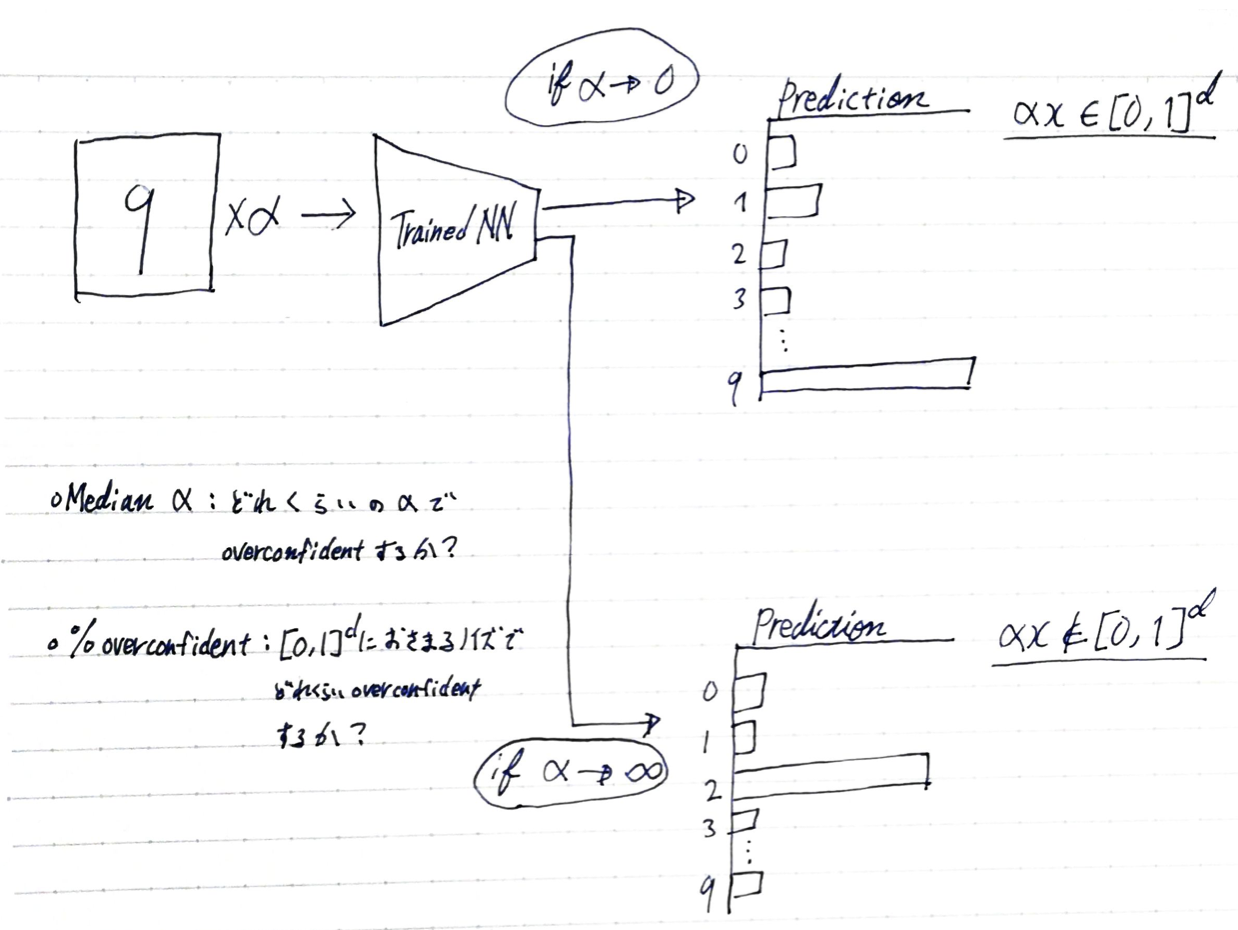 if α→0
Prediction
αx ∈ [0,1]^d
9 ×α →
Trained NN
0
1
2
3
⋮
9
○Median α : どれくらいのαで
overconfidentするか?
○%overconfident : [0,1]^dにおさまるノイズで
どれくらいoverconfident
するか?
if α→∞
Prediction
αx ∉ [0,1]^d
0
1
2
3
⋮
9